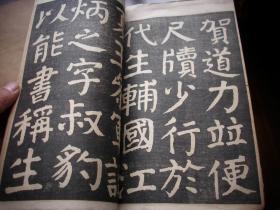 賀道力並便
尺牘少行於
代生輔國工
以能書稱生
炳之字叔豹